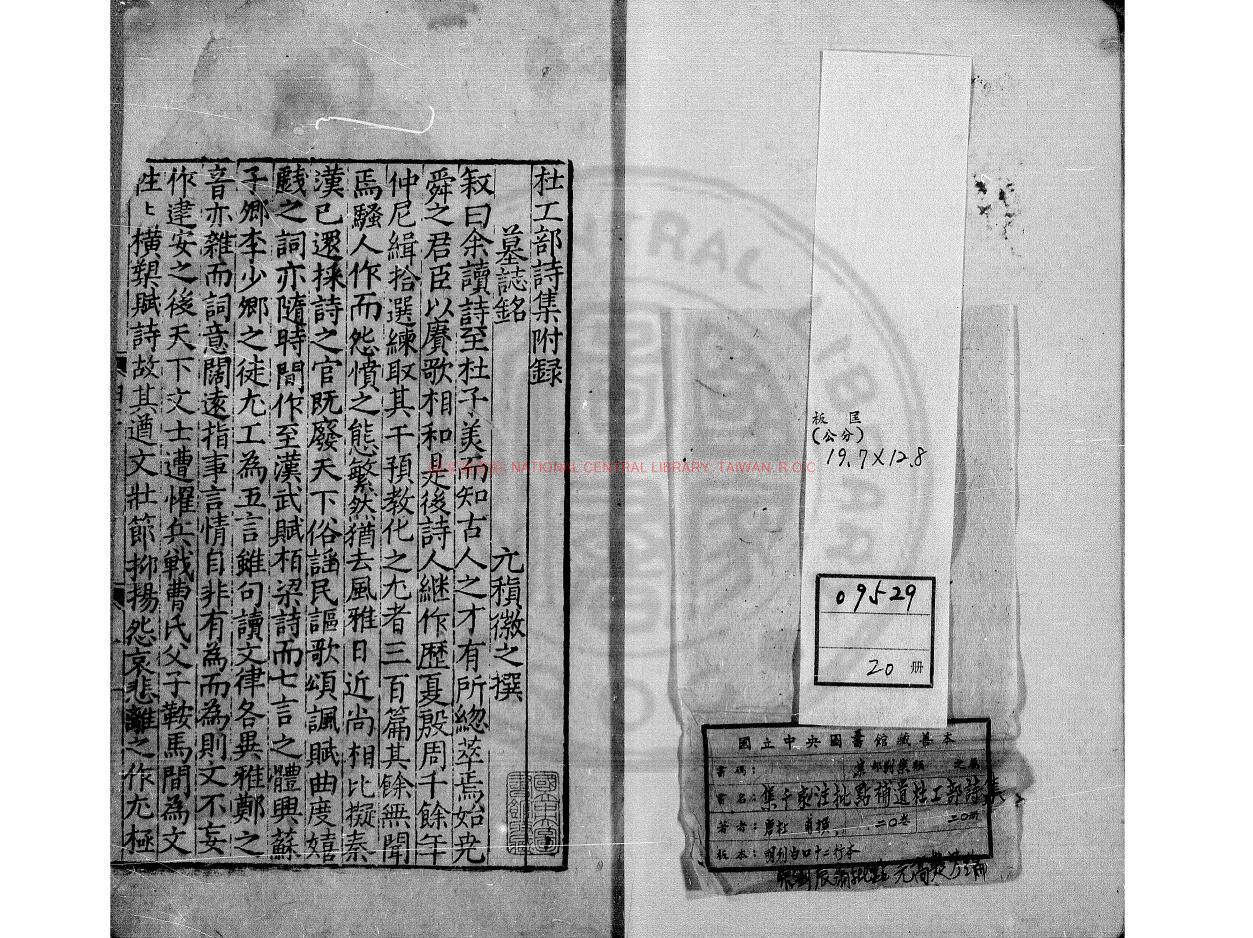 杜工部詩集附録
墓誌銘
元稹微之撰
叙曰余讀詩至杜子羙而知古人之才有所緫萃焉始尭
舜之君臣以賡歌相和是後詩人継作歷夏殷周千餘年
仲尼緝拾選練取其干預教化之尤者三百篇其餘無聞
焉騷人作而怨憤之態繁然猶去風雅日近尚相比擬秦
漢已還採詩之官既廢天下俗謡民謳歌頌諷賦曲度嬉
戱之詞亦隨時間作至漢武賦栢梁詩而七言之體興蘇
子卿李少卿之徒尤工為五言雖句讀文律各異雅鄭之
音亦雜而詞意闊遠指事言情自非有為而為則文不妄
作建安之後天下文士遭懼兵戰曹氏父子鞍馬間為文
徃〻横槊賦詩故其遒文壯節抑揚怨哀悲離之作尤極
板匡
(公分)
19.7×12.8
09529
20 册
國立中央圖書館藏善本
書碼：
集部別集類 之屬
書名：集千家注批點補遺杜工部詩集
著者：唐杜甫撰 二〇卷 二〇册
板本：明刊白口十二行本
宋劉辰翁批點 元高楚芳編
NATIONAL CENTRAL LIBRARY, TAIWAN, R.O.C